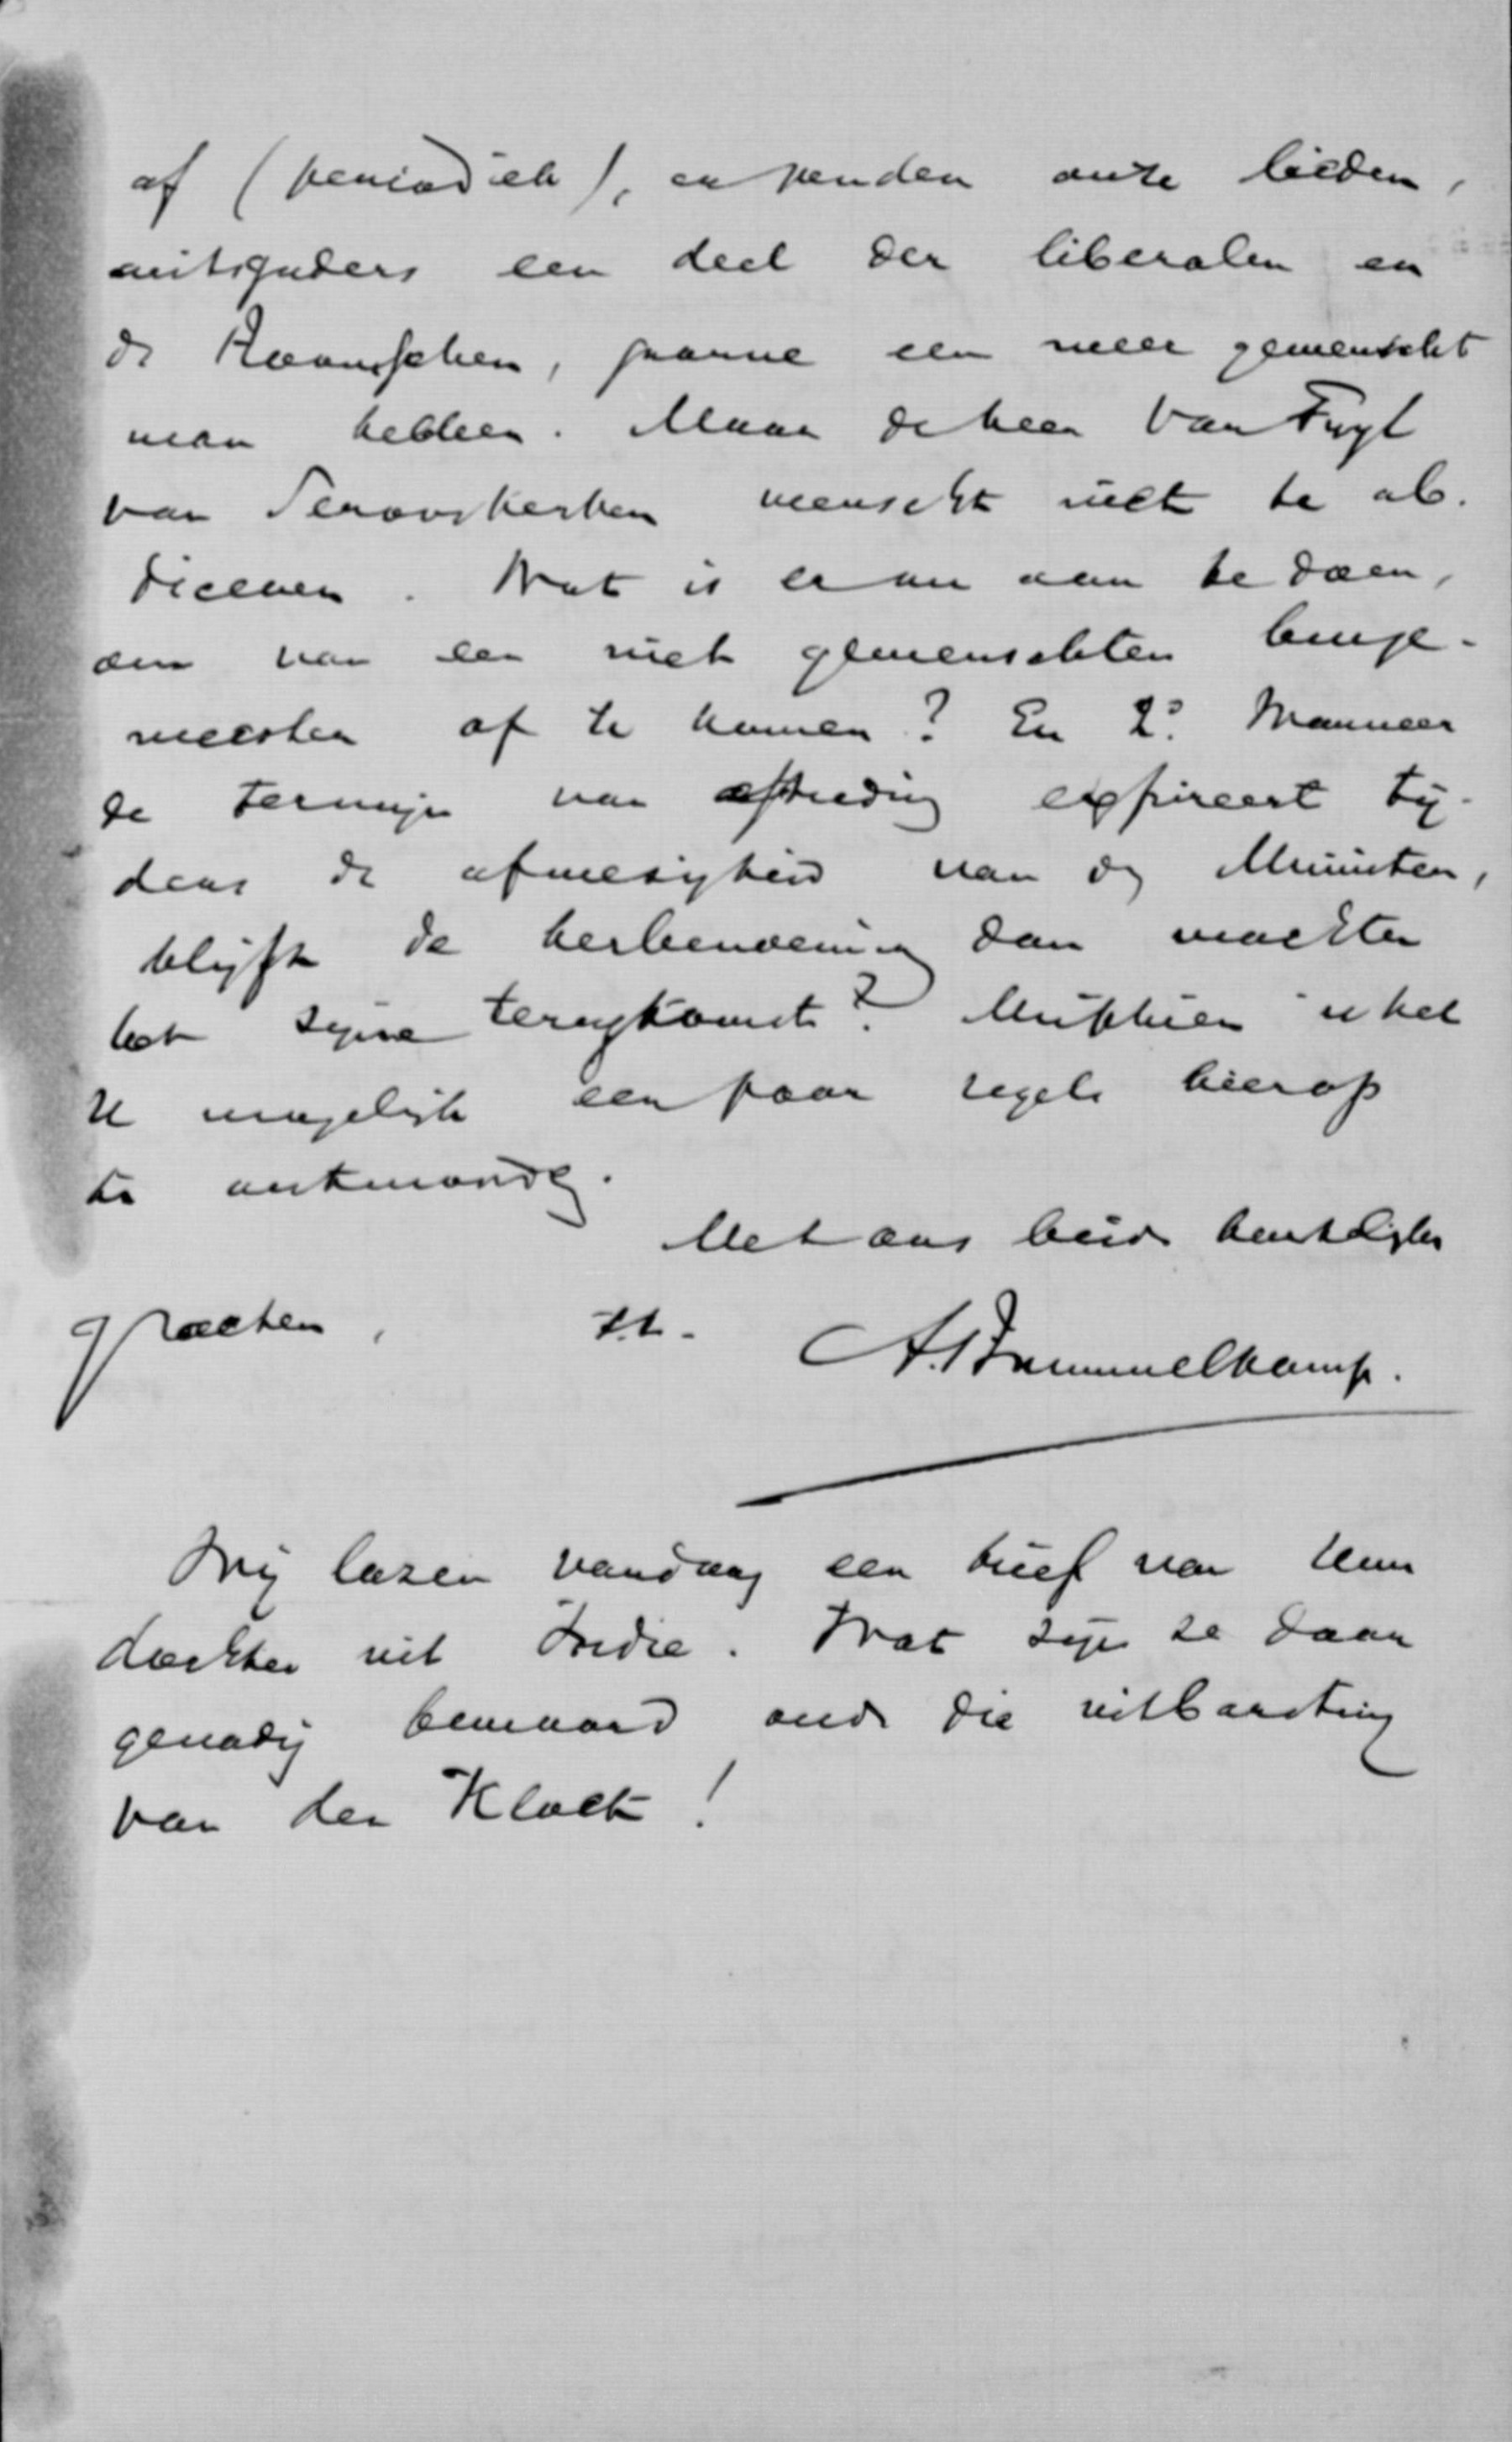 af (periodiek), en zouden onze lieden,
mitsgaders een deel der liberalen en
de Roomschen, gaarne een meer gewenscht
man hebben. Maar de heer van Tuyl
van Serooskerken wenscht niet te ab-
diceeren. Wat is er nu aan te doen,
om van een niet gewenschten burge-
meester af te komen? En 2º Wanneer
de termijn van aftreding expireert tij-
dens de afwezigheid van den Minister,
blijft de herbenoeming dan wachten
tot zijne terugkomst? Misschien is het
U mogelijk een paar regels hierop
te antwoorden.
Met ons beider hartelijke
groeten,
A. Brummelkamp.
Wij lazen vandaag een brief van Uwe
dochter uit Indië. Wat zijn ze daar
genadig bewaard onder die uitbarsting
van den Kloet!